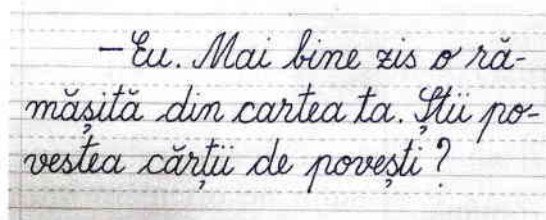 — Eu. Mai bine zis o ră-
mășită din cartea ta. Știi po-
vestea cărții de povești?